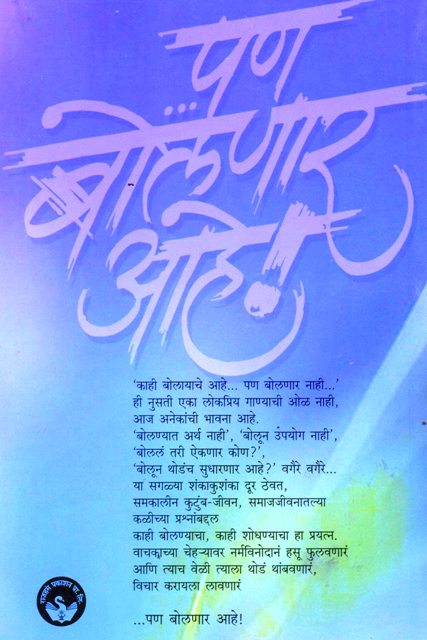 पण
...
बोलणार
आहे!
'काही बोलायाचे आहे... पण बोलणार नाही...'
ही नुसती एका लोकप्रिय गाण्याची ओळ नाही,
आज अनेकांची भावना आहे.
'बोलण्यात अर्थ नाही', 'बोलून उपयोग नाही',
'बोललं तरी ऐकणार कोण?',
'बोलून थोडंच सुधारणार आहे?' वगैरे वगैरे...
या सगळ्या शंकाकुशंका दूर ठेवत,
समकालीन कुटुंब-जीवन, समाजजीवनातल्या
कळीच्या प्रश्नांबद्दल
काही बोलण्याचा, काही शोधण्याचा हा प्रयत्न.
वाचकाच्या चेहऱ्यावर नर्मविनोदानं हसू फुलवणारं
आणि त्याच वेळी त्याला थोडं थांबवणारं,
विचार करायला लावणारं
...पण बोलणार आहे!
राजहंस प्रकाशन प्रा. लि.